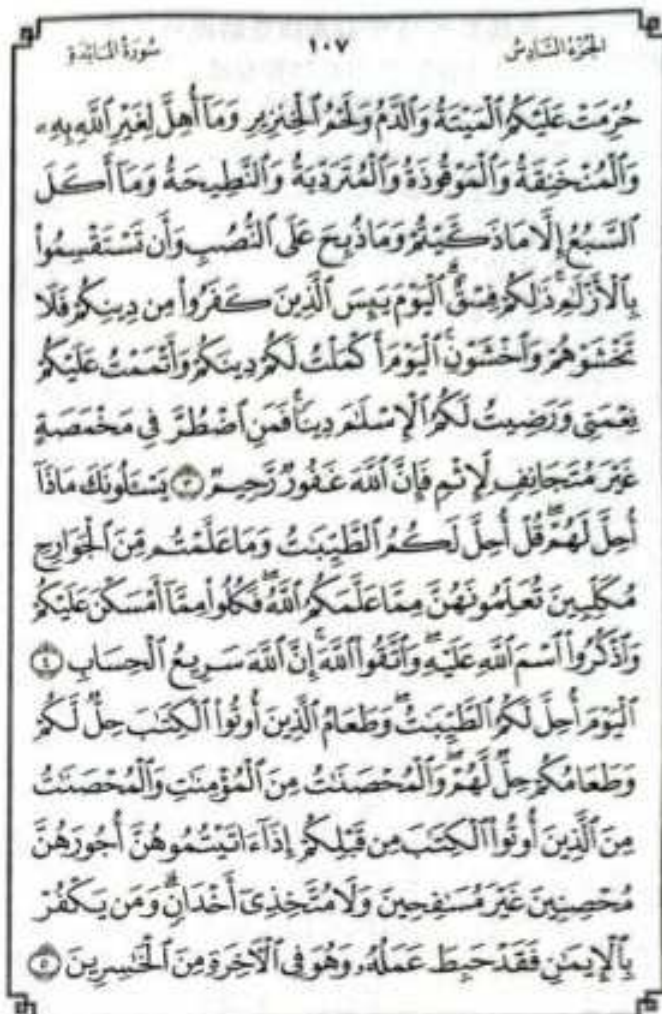 الجزء السادس ١٠٧ سورة المائدة
حُرِّمَتْ عَلَيْكُمُ ٱلْمَيْتَةُ وَٱلدَّمُ وَلَحْمُ ٱلْخِنزِيرِ وَمَآ أُهِلَّ لِغَيْرِ ٱللَّهِ بِهِۦ
وَٱلْمُنْخَنِقَةُ وَٱلْمَوْقُوذَةُ وَٱلْمُتَرَدِّيَةُ وَٱلنَّطِيحَةُ وَمَآ أَكَلَ
ٱلسَّبُعُ إِلَّا مَا ذَكَّيْتُمْ وَمَا ذُبِحَ عَلَى ٱلنُّصُبِ وَأَن تَسْتَقْسِمُوا۟
بِٱلْأَزْلَٰمِ ۚ ذَٰلِكُمْ فِسْقٌ ۗ ٱلْيَوْمَ يَئِسَ ٱلَّذِينَ كَفَرُوا۟ مِن دِينِكُمْ فَلَا
تَخْشَوْهُمْ وَٱخْشَوْنِ ۚ ٱلْيَوْمَ أَكْمَلْتُ لَكُمْ دِينَكُمْ وَأَتْمَمْتُ عَلَيْكُمْ
نِعْمَتِى وَرَضِيتُ لَكُمُ ٱلْإِسْلَٰمَ دِينًا ۚ فَمَنِ ٱضْطُرَّ فِى مَخْمَصَةٍ
غَيْرَ مُتَجَانِفٍ لِّإِثْمٍ فَإِنَّ ٱللَّهَ غَفُورٌ رَّحِيمٌ ٣ يَسْـَٔلُونَكَ مَاذَآ
أُحِلَّ لَهُمْ ۖ قُلْ أُحِلَّ لَكُمُ ٱلطَّيِّبَٰتُ وَمَا عَلَّمْتُم مِّنَ ٱلْجَوَارِحِ
مُكَلِّبِينَ تُعَلِّمُونَهُنَّ مِمَّا عَلَّمَكُمُ ٱللَّهُ ۖ فَكُلُوا۟ مِمَّآ أَمْسَكْنَ عَلَيْكُمْ
وَٱذْكُرُوا۟ ٱسْمَ ٱللَّهِ عَلَيْهِ ۖ وَٱتَّقُوا۟ ٱللَّهَ ۚ إِنَّ ٱللَّهَ سَرِيعُ ٱلْحِسَابِ ٤
ٱلْيَوْمَ أُحِلَّ لَكُمُ ٱلطَّيِّبَٰتُ ۖ وَطَعَامُ ٱلَّذِينَ أُوتُوا۟ ٱلْكِتَٰبَ حِلٌّ لَّكُمْ
وَطَعَامُكُمْ حِلٌّ لَّهُمْ ۖ وَٱلْمُحْصَنَٰتُ مِنَ ٱلْمُؤْمِنَٰتِ وَٱلْمُحْصَنَٰتُ
مِنَ ٱلَّذِينَ أُوتُوا۟ ٱلْكِتَٰبَ مِن قَبْلِكُمْ إِذَآ ءَاتَيْتُمُوهُنَّ أُجُورَهُنَّ
مُحْصِنِينَ غَيْرَ مُسَٰفِحِينَ وَلَا مُتَّخِذِىٓ أَخْدَانٍ ۗ وَمَن يَكْفُرْ
بِٱلْإِيمَٰنِ فَقَدْ حَبِطَ عَمَلُهُۥ وَهُوَ فِى ٱلْـَٔاخِرَةِ مِنَ ٱلْخَٰسِرِينَ ٥